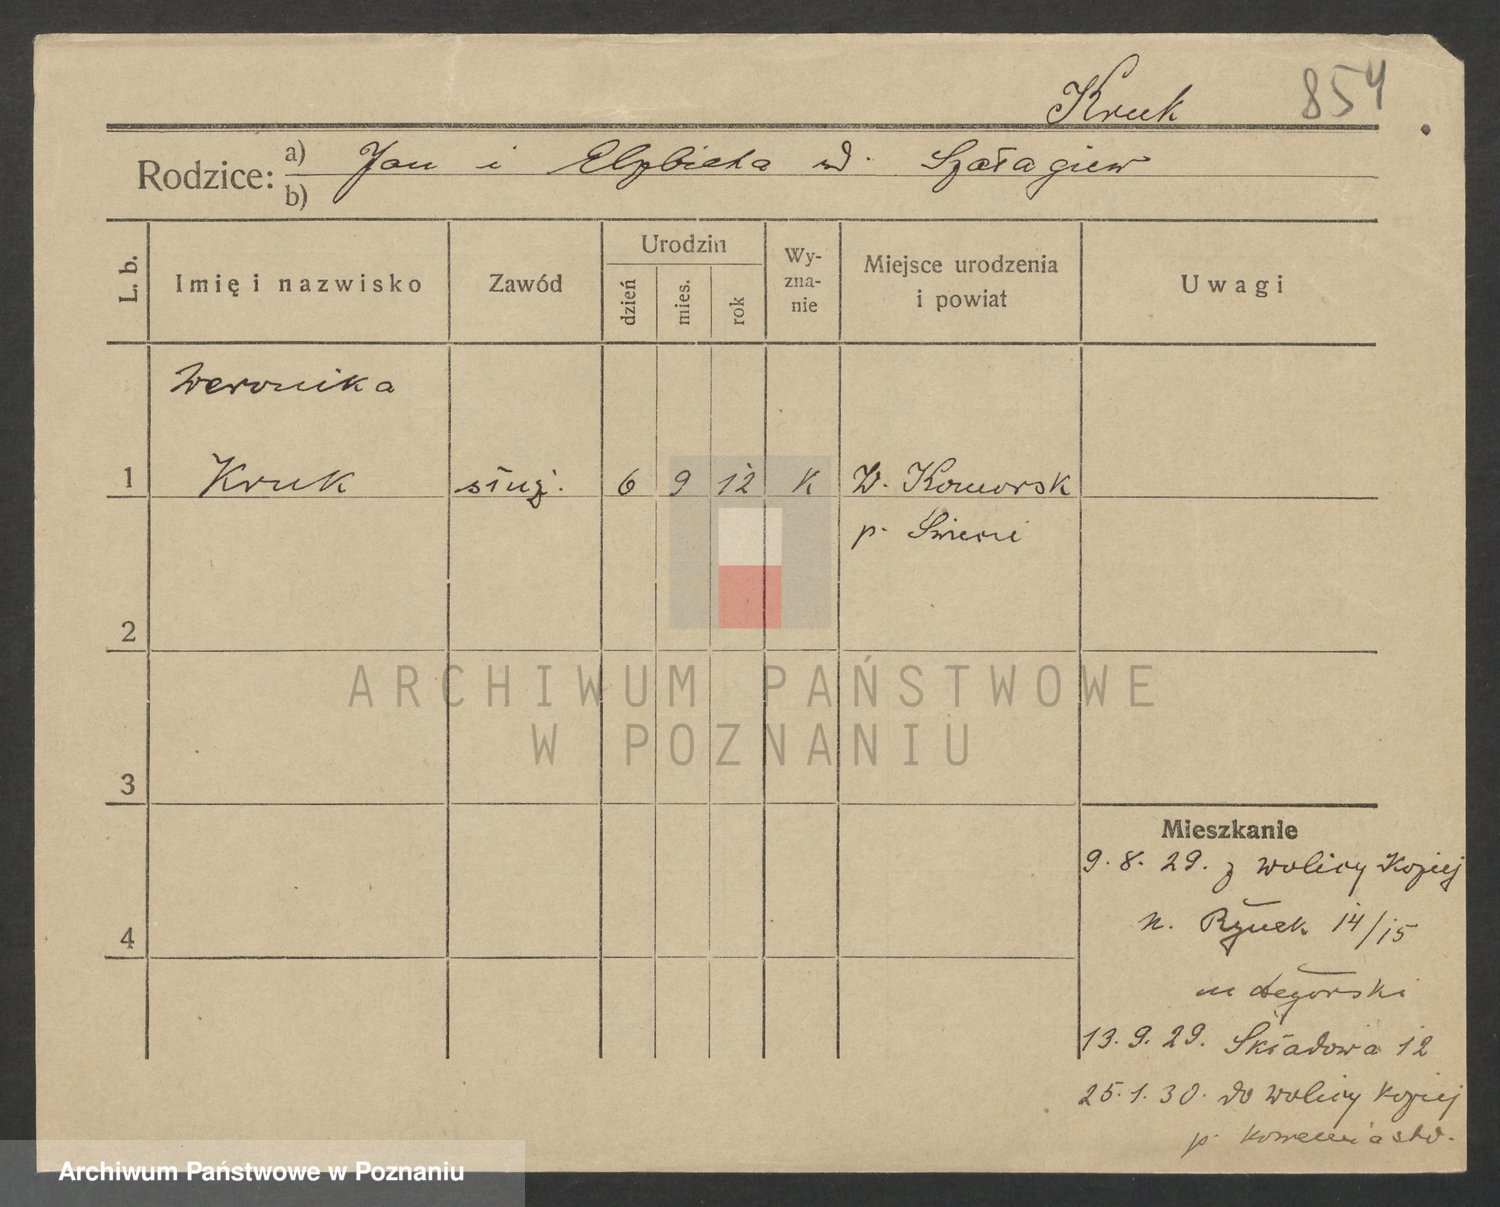 Kruk 854
Rodzice: a) Jan i Elżbieta ud. Szałagiew
b)
L. b.
Imię i nazwisko
Zawód
Urodzin
dzień
mies.
rok
Wy-
zna-
nie
Miejsce urodzenia
i powiat
Uwagi
Weronika
1 Kruk służ. 6 9 12 K W. Komorsk
p. Świecie
2
3
4
ARCHIWUM PAŃSTWOWE
W POZNANIU
Mieszkanie
9. 8. 29. z Wolicy Koziej
n. Rynek 14/15
u Degórski
13. 9. 29. Składowa 12
25. 1. 30. do Wolicy Koziej
p.
Archiwum Państwowe w Poznaniu